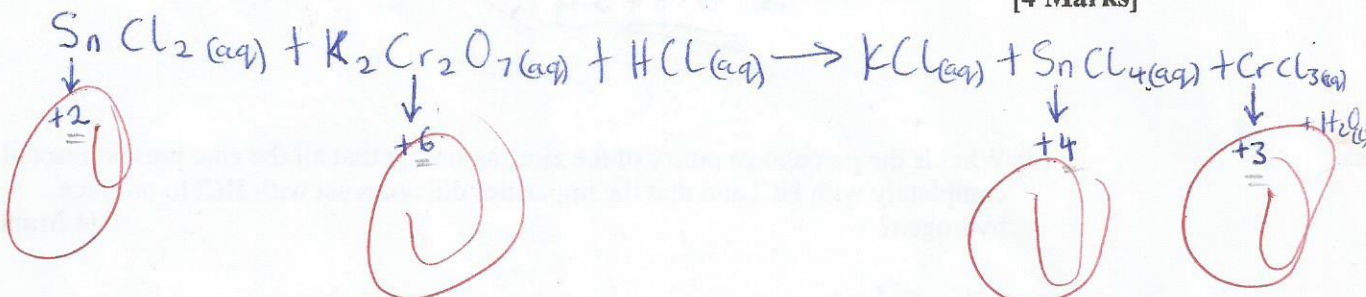 [4 Marks]
SnCl2(aq) + K2Cr2O7(aq) + HCl(aq) → KCl(aq) + SnCl4(aq) + CrCl3(aq)
+ H2O(l)
+2 +6 +4 +3